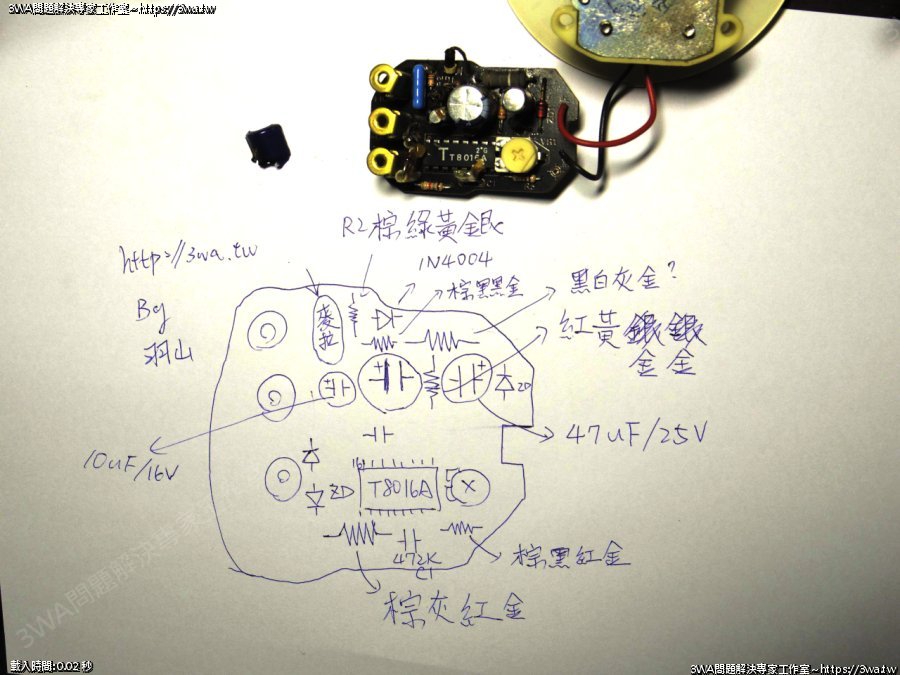 3WA問題解決專家工作室~https://3wa.tw
3WA問題解決專家工作室~https://3wa.tw
T T8016A
2*G
R2棕綠黃銀
http://3wa.tw
1N4004
棕黑黑金
黑白灰金?
By
羽山
麥拉
紅黃銀銀
金金
ZD
47uF/25V
10uF/16V
16
ZD
T8016A
472K
C1
棕黑紅金
棕灰紅金
3WA問題解決專家工作室
載入時間:0.02 秒
3WA問題解決專家工作室~https://3wa.tw